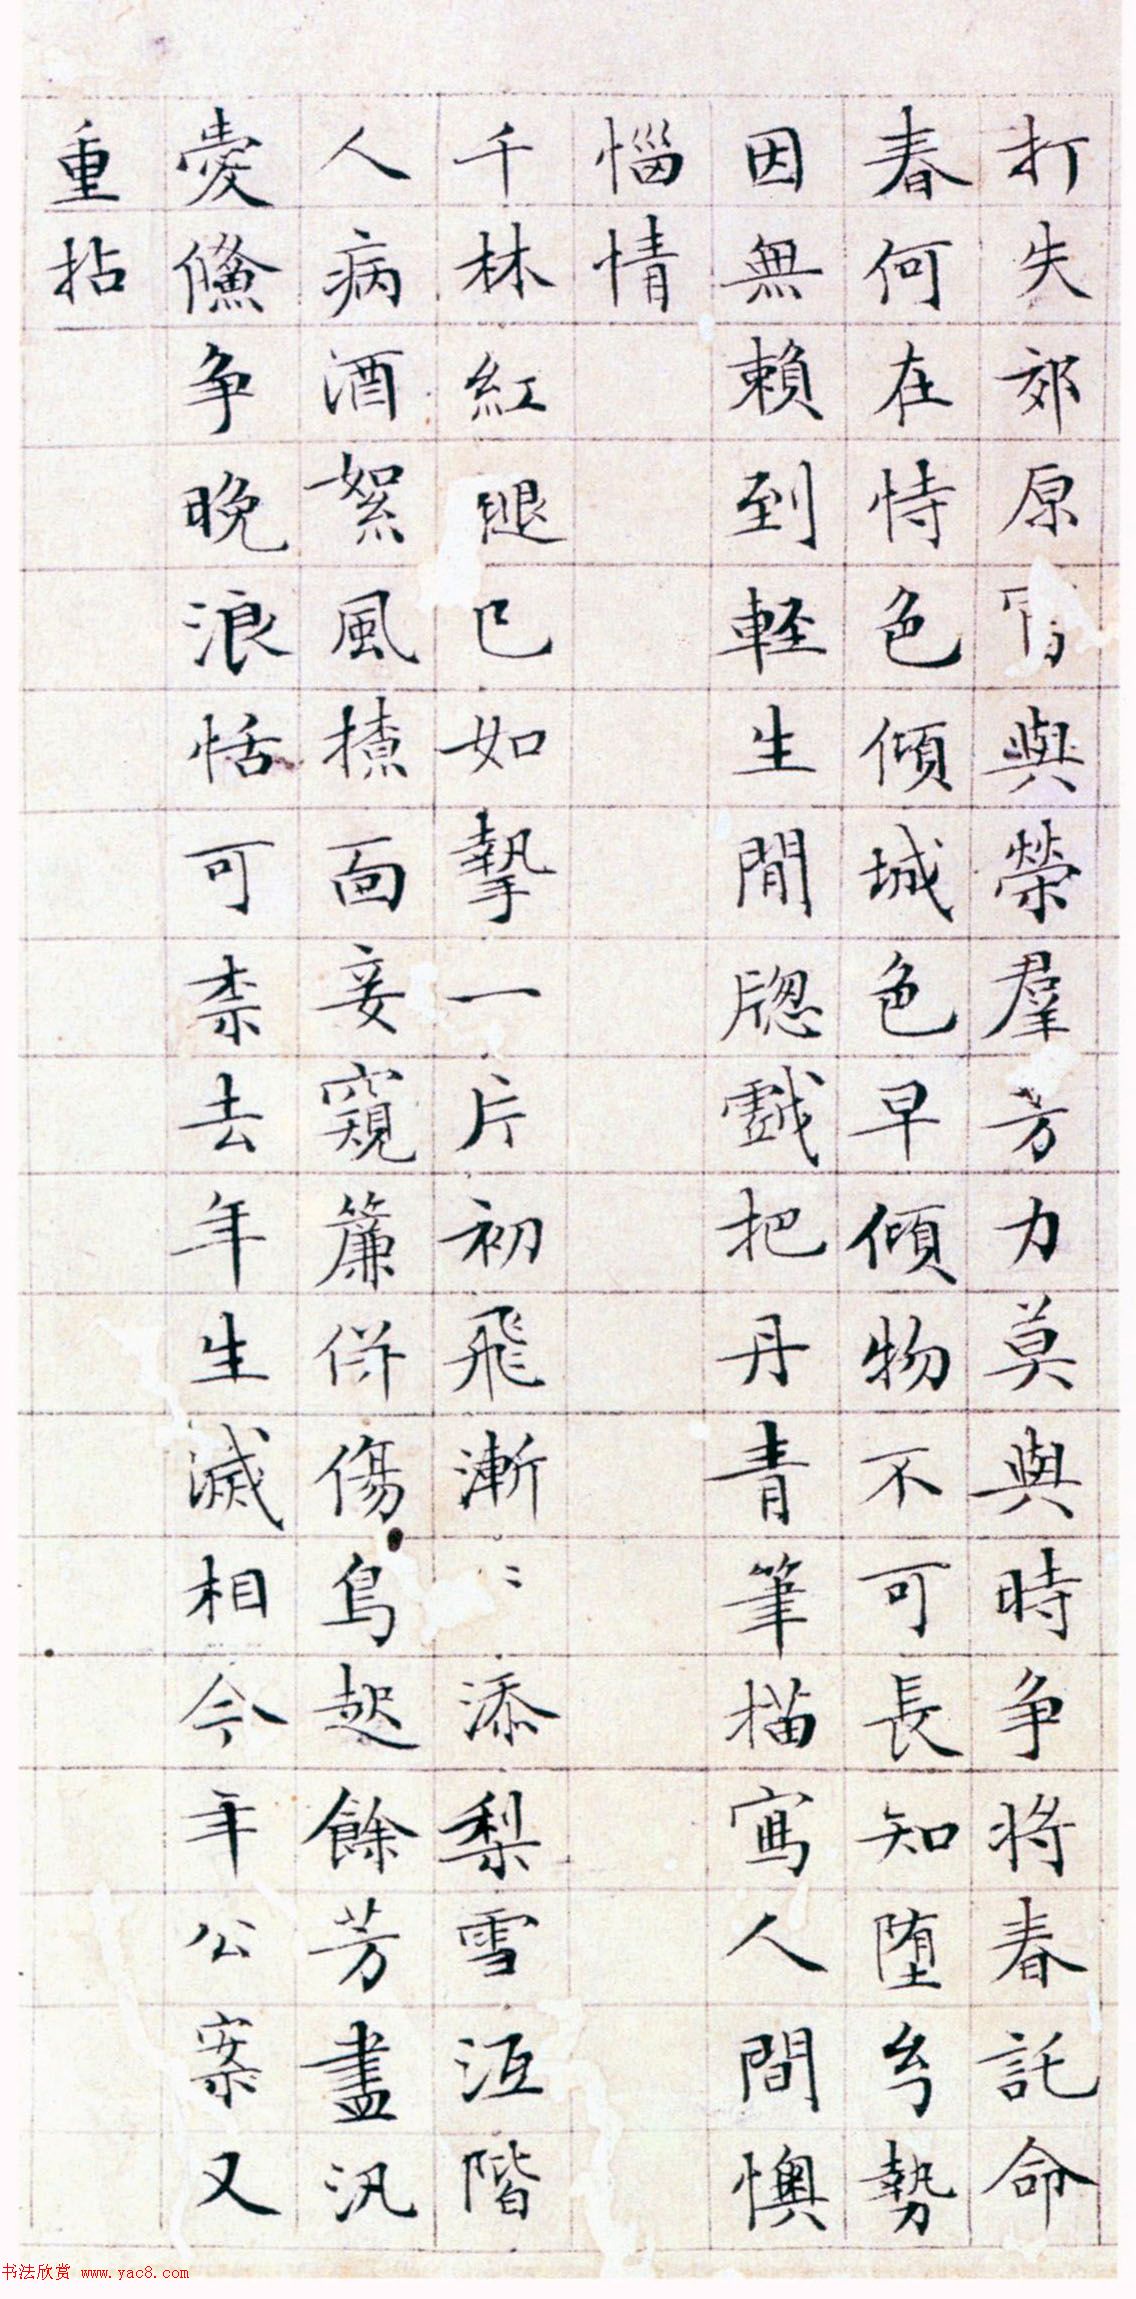 打失郊原與榮羣芳力莫與時爭將春託命
春何在恃色傾城色早傾物不可長知墮勢
因無賴到輕生閒牕戲把丹青筆描寫人間懊
惱情
千林紅褪已如揫一片初飛漸〻添梨雪沍階
人病酒絮風揸面妾窺簾併傷鳥起餘芳盡汎
愛儵爭晚浪恬可柰去年生滅相今年公案又
重拈
书法欣赏 www.yac8.com